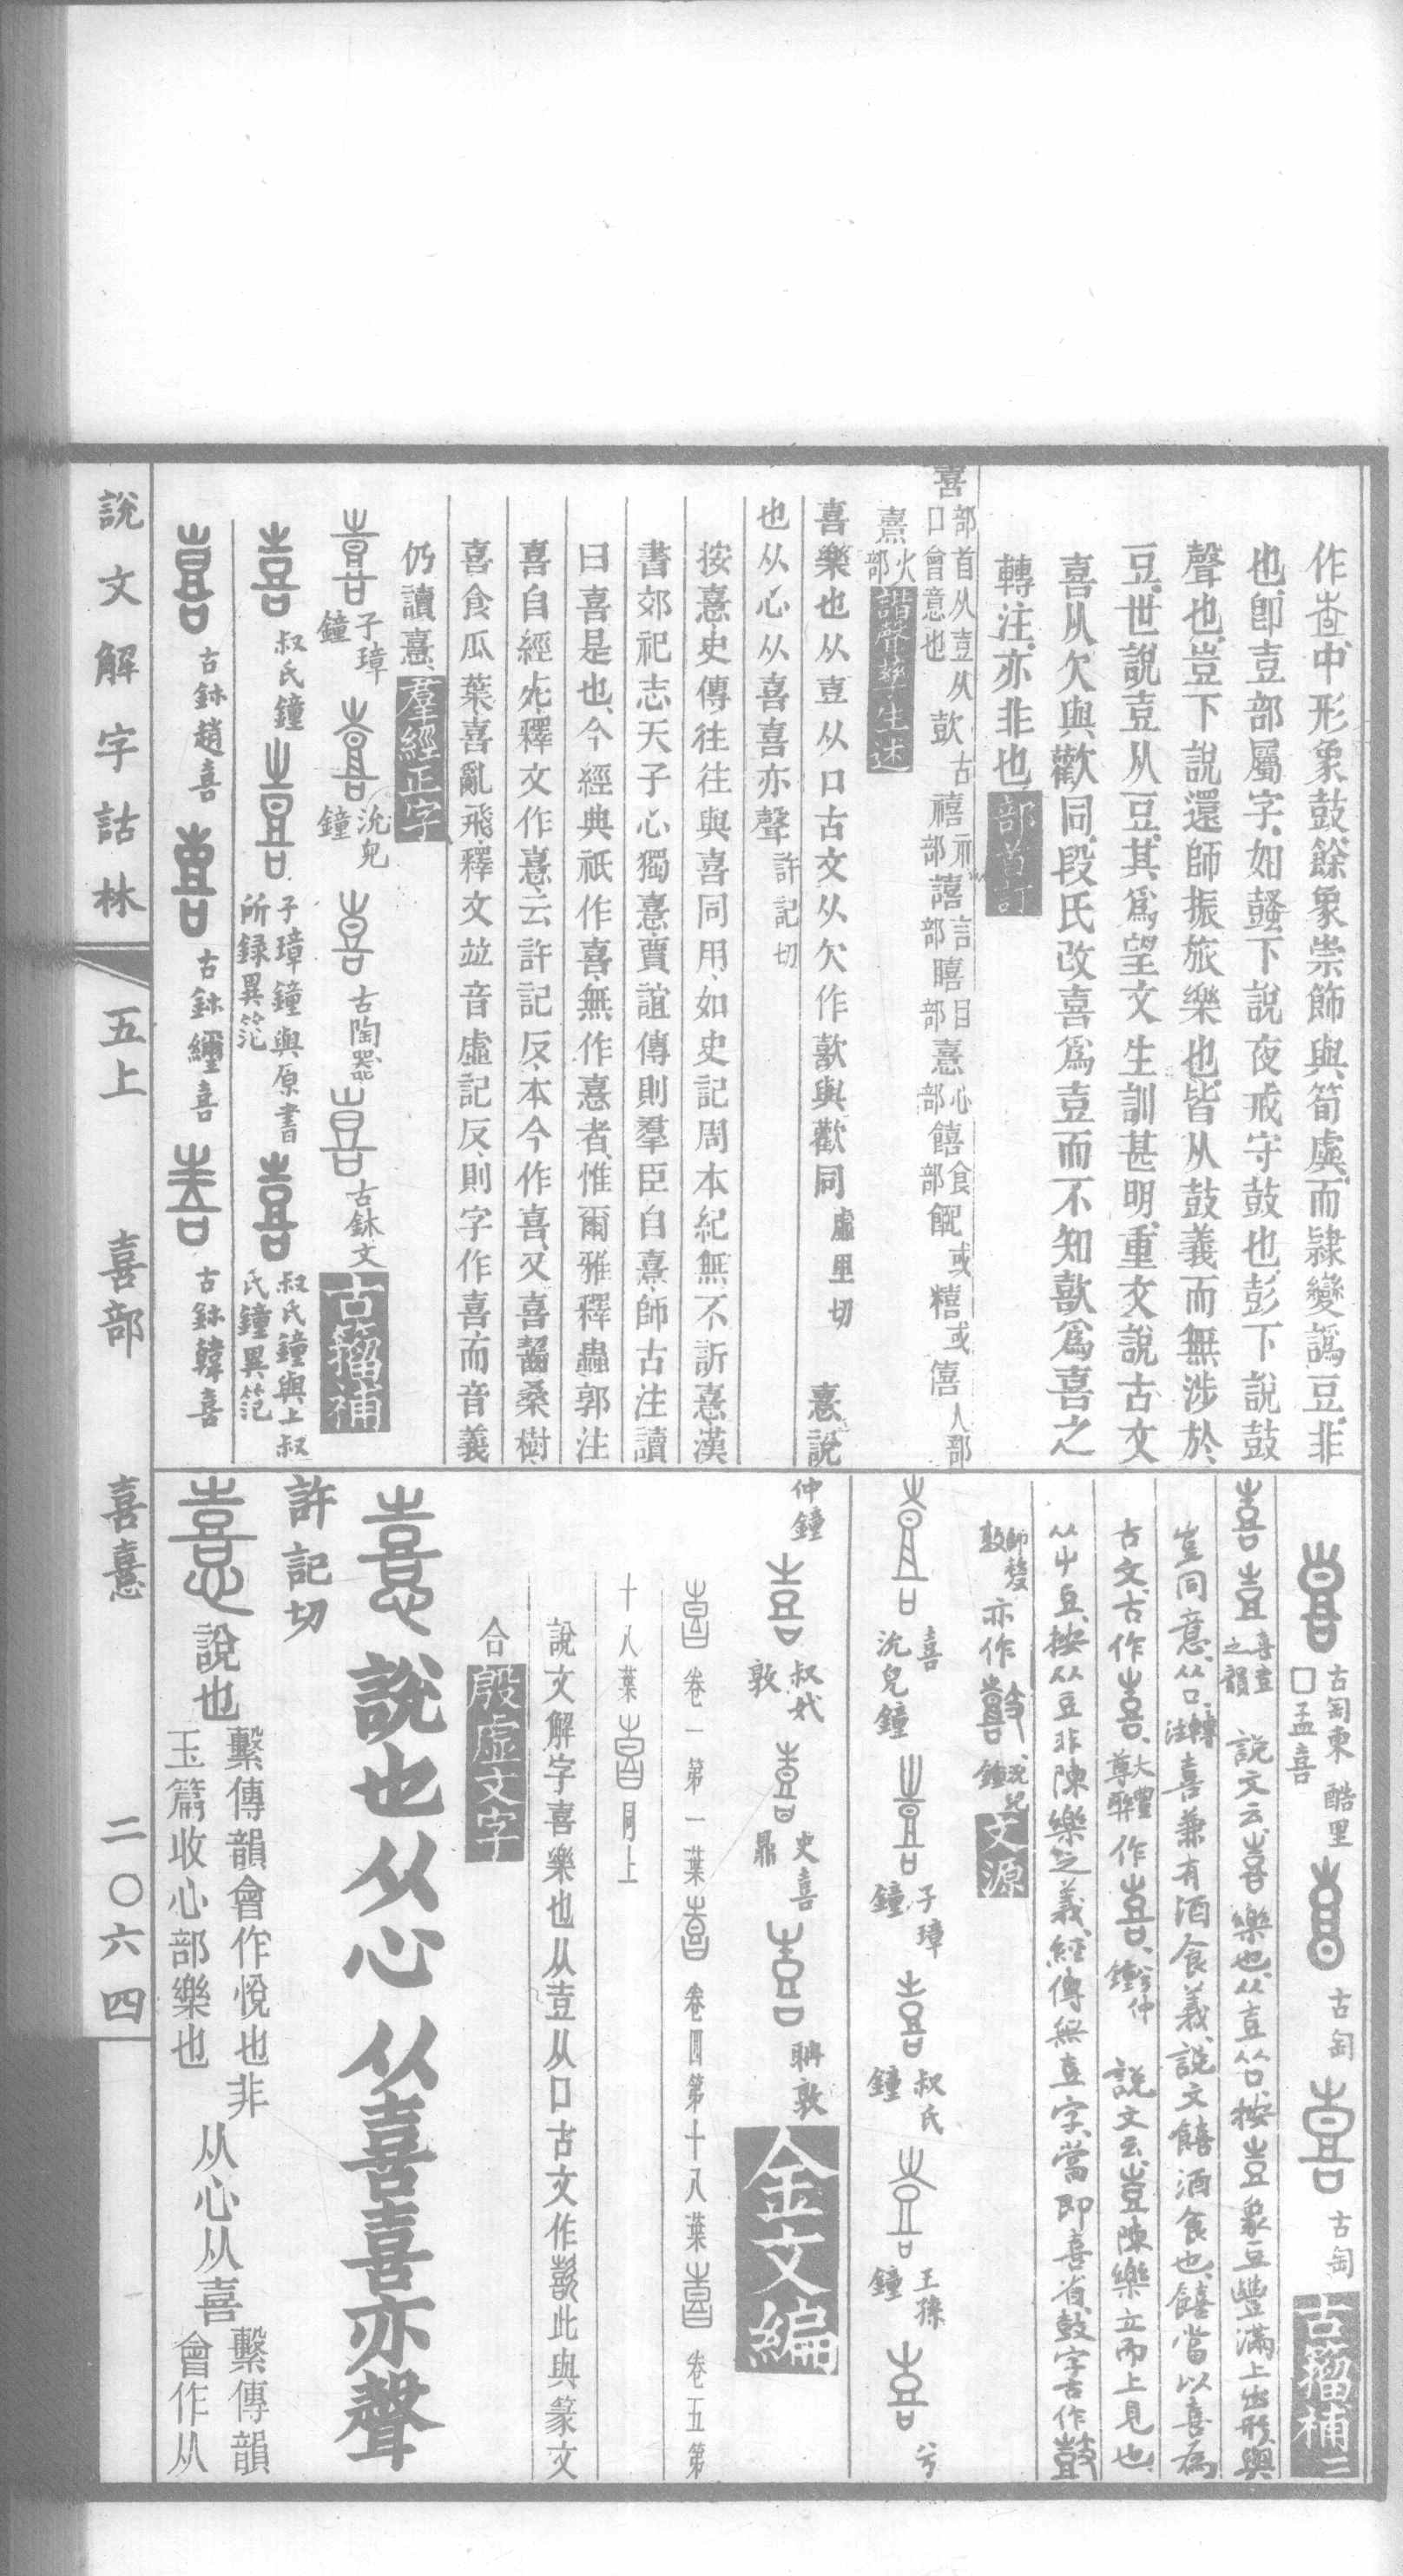 作壴、中形象鼓、餘象崇飾與筍虡、而隸變譌豆、非
也、卽壴部屬字、如鼜下說夜戒守鼓也、彭下說鼓
聲也、豈下說還師振旅樂也、皆从鼓義而無涉於
豆、世說壴从豆、其爲望文生訓甚明、重文說古文
喜从欠與歡同、段氏改喜爲壴而不知歖爲喜之
轉注、亦非也、部首訂
喜部首从壴从口會意也 歖古 禧示部 譆言部 瞦目部 憙心部 饎食部 䬣或 糦或 僖人部
熹火部 諧聲孳生述
喜樂也从壴从口古文从欠作歖與歡同虛里切 憙說
也从心从喜喜亦聲許記切
按憙、史傳往往與喜同用、如史記周本紀無不訢憙、漢
書郊祀志天子心獨憙、賈誼傳則羣臣自憙、師古注讀
曰喜是也、今經典祇作喜、無作憙者、惟爾雅釋蟲郭注
喜自經死、釋文作憙、云許記反、本今作喜、又喜齧桑樹
喜食瓜葉、喜亂飛、釋文竝音虛記反、則字作喜而音義
仍讀憙、羣經正字
子璋鐘 沇兒鐘 古陶器 古鉥文 古籀補
叔氏鐘 子璋鐘與原書所録異笵 叔氏鐘與上叔氏鐘異笵
古鉥趙喜 古鉥喜 古鉥韓喜
古匋東酷里□孟喜 古匋 古匋 古籀補二
喜壴喜壴之韻 說文云、喜樂也、从壴从口、按壴象豆豐滿上出形、與
豈同意、从口、轉注、喜兼有酒食義、說文饎酒食也、饎當以喜爲
古文、古作喜、大豐尊聯作喜、兮仲鐘 說文云、壴陳樂立而上見也、
从屮豆、按从豆非陳樂之義、經傳無壴字、當卽喜省、鼓字古作鼓
師𠭰敦亦作沇兒鐘 文源
喜沇兒鐘 子璋鐘 叔氏鐘 王孫鐘 兮
仲鐘 叔㚤敦 史喜鼎 敦 金文編
卷一第一葉 卷四第十八葉 卷五第
十八葉 同上
說文解字喜樂也从壴从口古文作歖此與篆文
合 殷虛文字
憙 說也从心从喜喜亦聲
許記切
憙 說也繫傳韻會作悅也非玉篇收心部樂也 从心从喜繫傳韻會作从
說文解字詁林 五上 喜部 喜憙 二〇六四